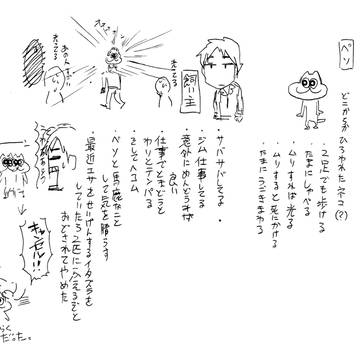 ペソ
どこからかひろわれたネコ(?)
・2足でも歩ける
・たまにしゃべる
・ムリすれば光る
・ムリすると死にかける
・たまにうごきまわる
飼い主
・サバサバしてる
・ジム仕事してる
・意外にめんどうみは良い
・仕事でてまどうとわりとテンパる
・そしてヘコム
・ペソと馬鹿なことして気を晴らす
・最近エサをせいげんするイタズラをしていたら2匹にふえるぞとおどされてやめた
キャンセル!!
らく
だった。